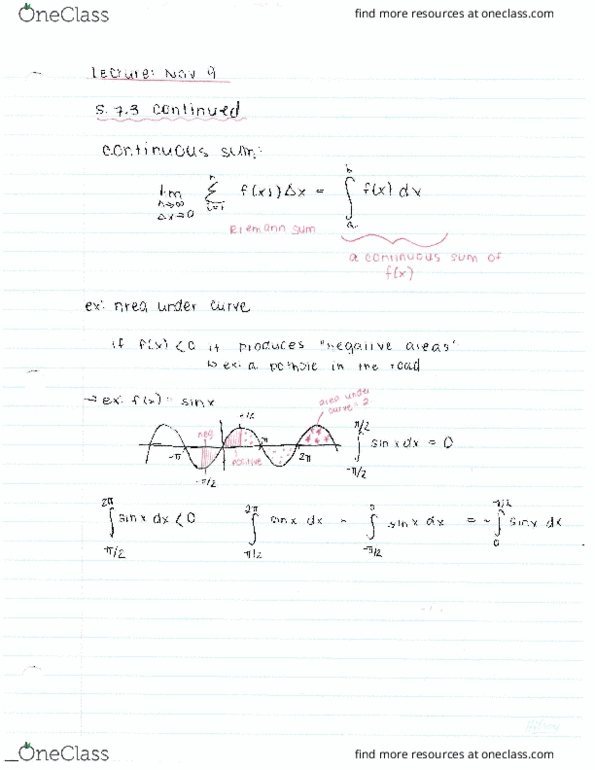 OneClass
find more resources at oneclass.com
lecture: Nov 9
s. 7.3 continued
continuous sum:
lim n→∞ Δx→0 n Σ i=1 f(xi)Δx = b ∫ a f(x) dx
Riemann sum
a continuous sum of
f(x)
ex: Area under curve
if f(x) < 0 it produces "negative areas"
↳ ex: a pothole in the road
→ ex: f(x) = sin x
area under
curve = 2
neg
positive
π/2
-π
π
2π
-π/2
π/2 ∫ -π/2 sin x dx = 0
2π ∫ π/2 sin x dx < 0
2π ∫ π/2 sin x dx
0 ∫ -π/2 sin x dx
= - ∫ 0 sin x dx
OneClass
find more resources at oneclass.com